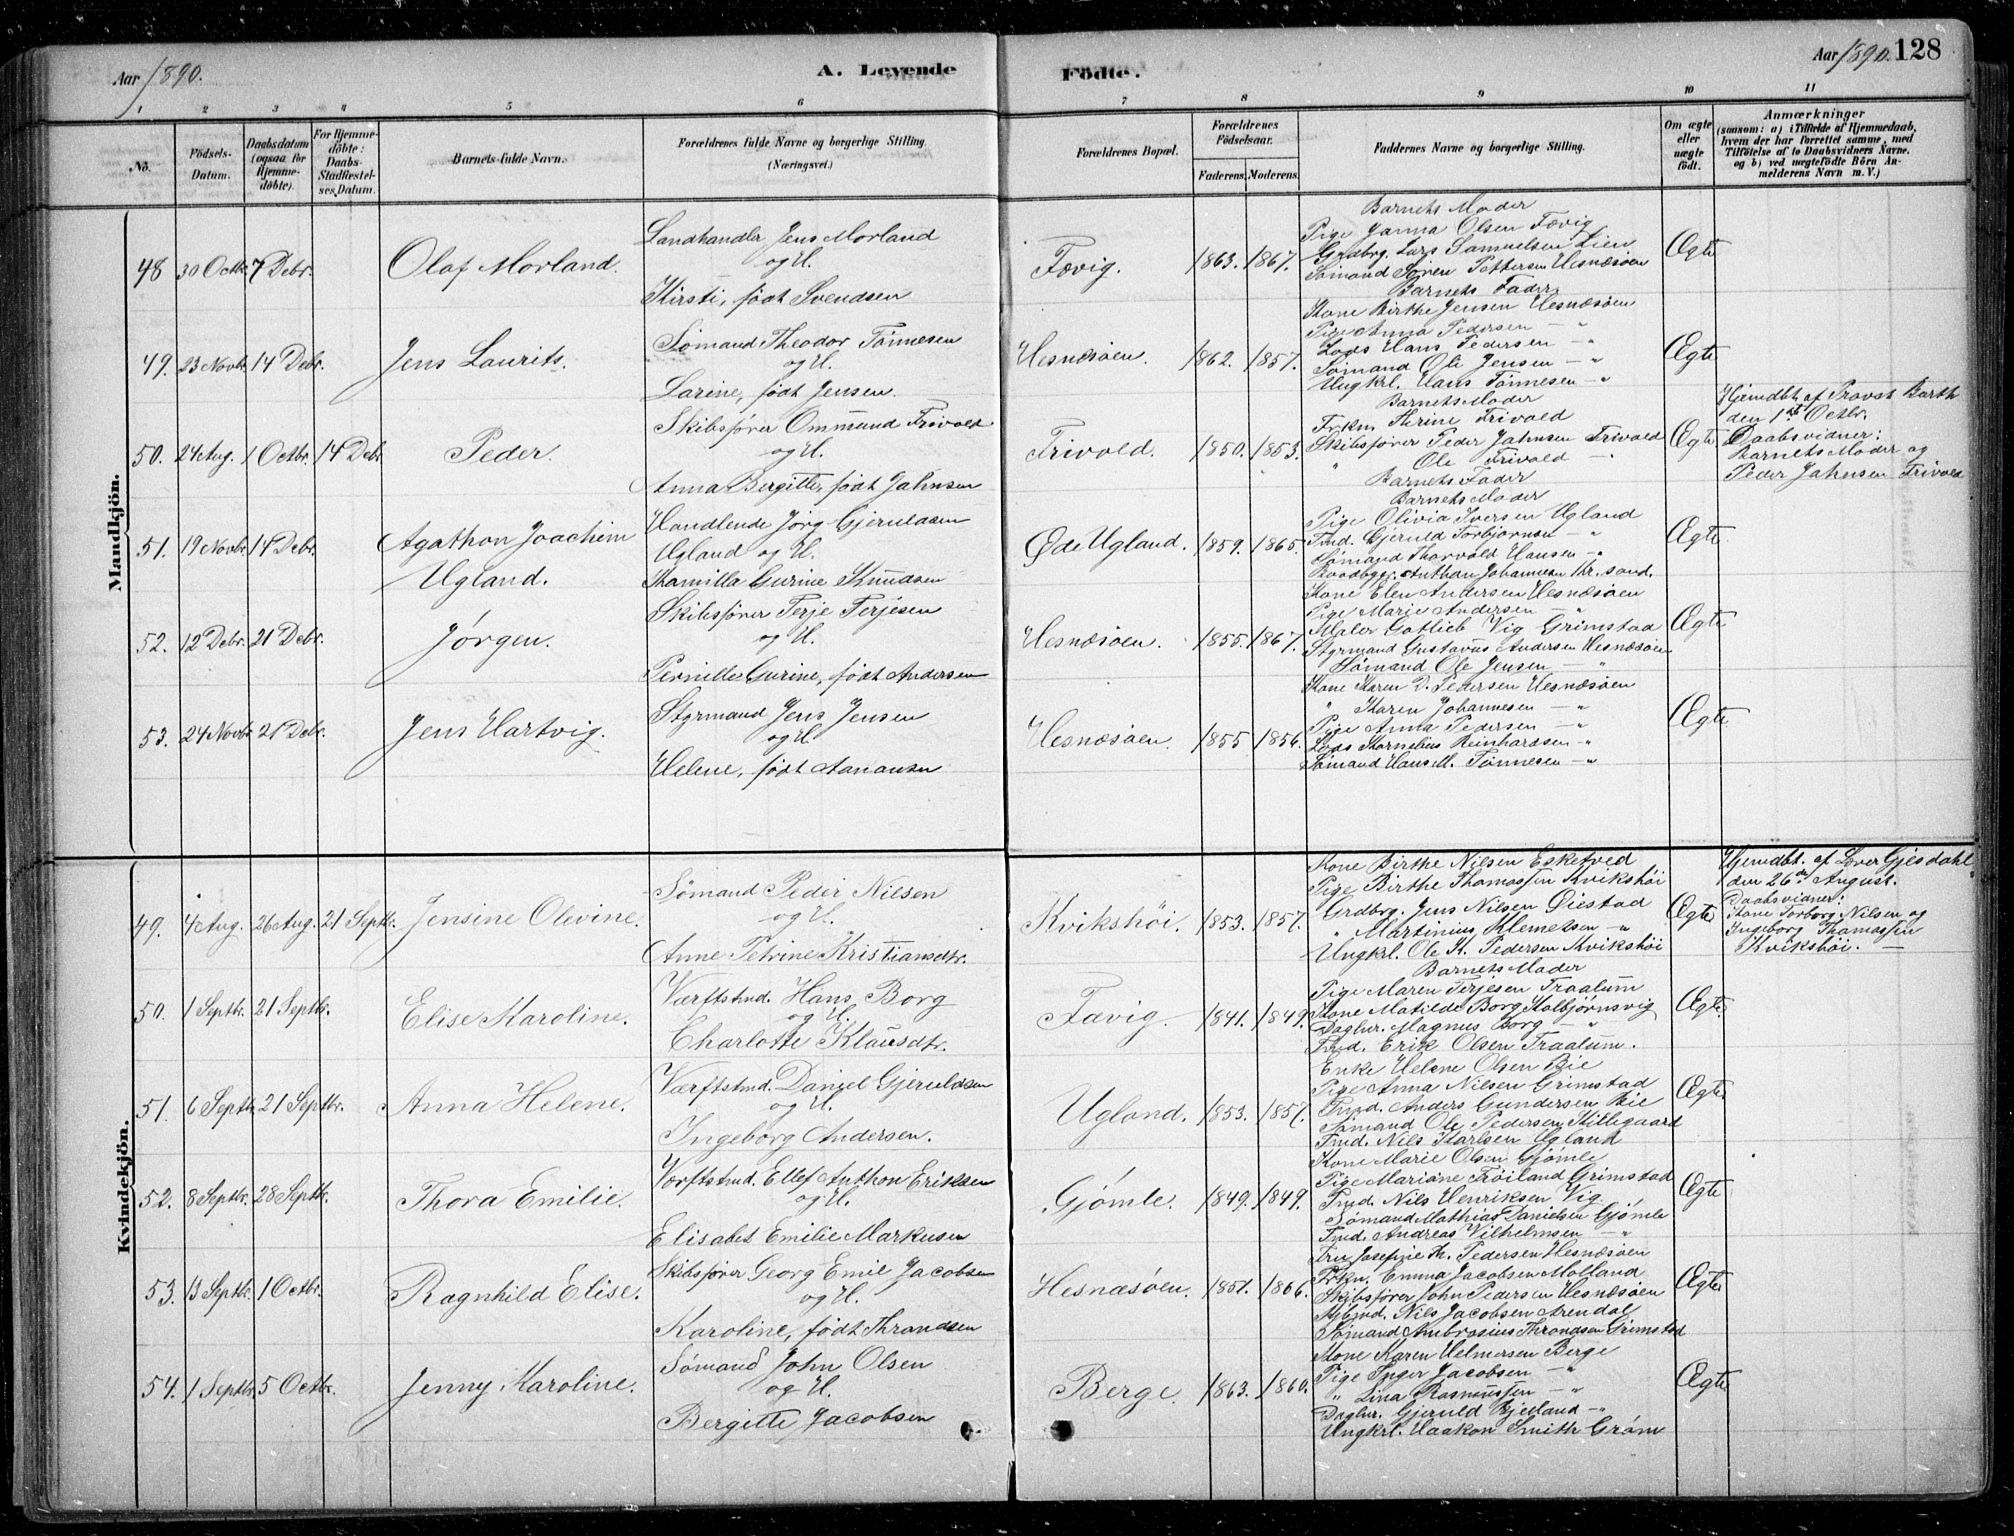 Aar 1890.
A. Levende
Födte.
Aar 1890. 128
1 2 3 4 5 6 7 8 9 10 11
No.
Födsels-Datum.
Daabsdatum (ogsaa for Hjemme-döbte).
For Hjemme-döbte: Daabs-Stadfæstel-ses Datum.
Barnets fulde Navn.
Forældrenes fulde Navne og borgerlige Stilling (Næringsvei.)
Forældrenes Bopæl.
Forældrenes Födselsaar.
Faderens. Moderens.
Faddernes Navne og borgerlige Stilling.
Om ægte eller uægte födt.
Anmærkninger
(saasom: a) i Tilfælde af Hjemmedaab,
hvem der har forrettet samme, med
Tilföielse af to Daabsvidners Navne,
og b) ved uægtefödte Börn An-
melderens Navn m. V.)
Mandkjön.
48 30 Octbr. 7 Debr. Olaf Morland.
Landhandler Jens Morland
og H.
Kirsti, født Svendsen
Fævig. 1863. 1867.
Barnets Moder
Pige Janna Olsen Fævig
Grdbrg. Lars Samuelsen Lien
Sømand Søren Pettersen Hesnæsøen
Barnets Fader
Ægte
49. 23 Novbr. 14 Debr. Jens Laurits.
Sømand Theodor Tønnesen
og H.
Larine, født Jensen.
Hesnæsøen. 1862. 1857.
Kone Birthe Jensen Hesnæsøen
Pige Anna Pedersen — "
Lods Hans Pedersen — "
Sømand Ole Jensen — "
Ungkrl. Hans Tønnesen — "
Ægte
50. 24 Aug. 1 Octbr. 14 Debr. Peder.
Skibsfører Ommund Frivold
og H.
Anna Bergitte, født Jahnsen
Frivold. 1850. 1853.
Barnets Moder
Frkn. Thrine Frivold
Skibsfører Peder Jahnsen Frivold
" Ole Frivold — "
Barnets Fader
Ægte
Hjemdbt. af Provst Barth
den 1st Octbr.
Daabsvidner:
Barnets Moder og
Peder Jahnsen Frivold
51. 19 Novbr. 14 Debr. Agathon Joachim
Ugland.
Handlende Jørg Gjeruldsen
Ugland og H.
Kamilla Gurine Knudsen
Øde Ugland. 1859. 1865.
Barnets Moder
Pige Olivia Iversen Ugland
Fmd. Gjeruld Torbjørnsen — "
Sømand Thorvald Hansen — "
Baadbygr. Anthon Johannesen Kr. sand.
Ægte
52. 12 Debr. 21 Debr. Jørgen.
Skibsfører Terje Terjesen
og H.
Pernille Gurine, født Andersen
Hesnæsøen. 1855. 1867.
Kone Elen Andersen Hesnæsøen
Pige Marie Andersen — "
Maler Gotlieb Vig Grimstad
Styrmand Gustavus Andersen Hesnæsøen
Sømand Ole Jensen — "
Ægte
53. 24 Novbr. 21 Debr. Jens Hartvig.
Styrmand Jens Jensen
og H.
Helene, født Aanansen
Hesnæsøen. 1855 1856.
Kone Karen D. Pedersen Hesnæsøen
" Karen Johannesen — "
Pige Anna Pedersen — "
Lods Kornelius Reinhardsen — "
Sømand Hans M. Tønnesen — "
Ægte
Kvindekjön.
49. 4 Aug. 26 Aug. 21 Septbr. Jensine Olevine.
Sømand Peder Nilsen
og H.
Anne Petrine Kristiansdtr.
Kvikshöi. 1853. 1857.
Kone Birthe Nilsen Esketved
Pige Birthe Thomassen Kvikshöi
Grdbrg. Jens Nilsen Øiestad
" Martinius Klemetsen — "
Ungkrl. Ole K. Pedersen Kvikshöi
Ægte
Hjemdbt. af Lærer Gjesdahl
den 26de August.
Daabsvidner:
Kone Torborg Nilsen og
Ingeborg Thomassen
Kvikshöi. —
50. 1 Septbr. 21 Septbr. Elise Karoline.
Værftstmd. Hans Borg
og H.
Charlotte Klausdtr.
Fævig. 1841. 1849.
Barnets Moder
Pige Maren Terjesen Traalum
Kone Matilde Borg Kalbjørnsvig
Daglnr. Magnus Borg — "
Fmd. Erik Olsen Traalum.
Ægte.
51. 6 Septbr. 21 Septbr. Anna Helene.
Værftstmd. Daniel Gjeruldsen
og H.
Ingeborg Andersen.
Ugland. 1853. 1857.
Enke Helene Olsen Bie
Pige Anna Nilsen Grimstad
Tmd. Anders Gundersen Bie
Sømand Ole Pedersen Killegaard
Tmd. Nils Karlsen Ugland
Ægte
52. 8 Septbr. 28 Septbr. Thora Emilie.
Værftstmd. Ellef Anthon Eriksen
og H.
Elisabet Emilie Markusen
Gjömle. 1849. 1849.
Kone Marie Olsen Gjömle
Pige Mariane Fröiland Grimstad
Tmd. Nils Henriksen Vig
Sømand Mathias Danielsen Gjömle
Tmd. Andreas Vilhelmsen — "
Ægte
53. 13 Septbr. 1 Octbr. Ragnhild Elise.
Skibsfører Georg Emil Jacobsen
og H.
Karoline, født Thrandsen
Hesnæsøen. 1851. 1866.
Fru Josefine Th. Pedersen Hesnæsøen
Frkn. Emma Jacobsen Molland
Skibsfører John Pedersen Hesnæsøen
Nils Jacobsen Arendal
Sømand Ambrosius Throndsen Grimstad
Ægte
54. 1 Septbr. 5 Octbr. Jenny Karoline.
Sømand John Olsen
og H.
Bergitte Jacobsen
Berge. 1863. 1860.
Kone Karen Helmersen Berge
Pige Inger Jacobsen — "
" Lina Rasmussen — "
Daglnr. Gjeruld Bjelland — "
Ungkrl. Haakon Smith Grøm
Ægte